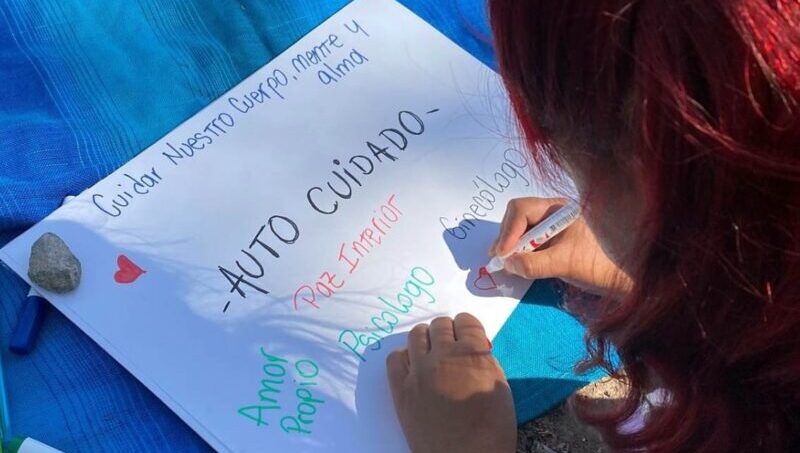 Cuidar Nuestro Cuerpo, mente y
alma
-AUTO CUIDADO-
Paz Interior
Ginecólogo
Psicólogo
Amor
Propio